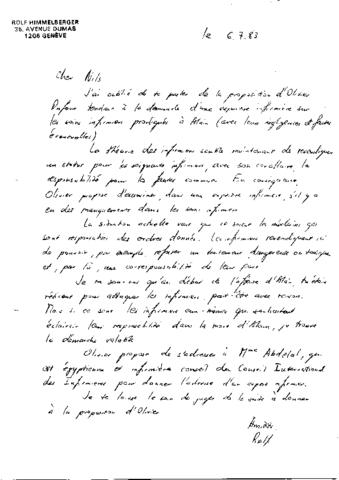 ROLF HIMMELBERGER
36, AVENUE DUMAS
1206 GENÈVE
le 6.7.83
Cher Nils
J'ai oublié de te parler de la proposition d'Olivier
Dufour tendant à la demande d'une expertise infirmière sur
les soins infirmiers prodigués à Alain (avec leur négligences et fautes
éventuelles)
La théorie des infirmiers semble maintenant de revendiquer
un statut pour les soignants infirmiers, avec son corollaire la
responsabilité pour les fautes commises. En conséquence,
Olivier propose d'examiner, dans une expertise infirmière, s'il y a
eu des manquements dans les soins infirmiers
La situation actuelle veut que ce soient les médecins qui
sont responsables des ordres donnés. Les infirmiers revendiquent ici
de pouvoir, par exemple, refuser un traitement dangereux ou toxique
et, par là, une coresponsabilité de leur part.
Je me souviens qu'au début de l'affaire d'Alain, tu étais
réticent pour attaquer les infirmiers, peut-être avec raison.
Mais si ce sont les infirmiers eux-mêmes qui souhaitent
éclaircir leur responsabilité dans la mort d'Alain, je trouve
la démarche valable
Olivier propose de s'adresser à Mme Abdelal, qui
est égyptienne et infirmière conseil du Conseil International
des Infirmières pour donner l'adresse d'un expert infirmier.
Je te laisse le soin de juger de la suite à donner
à la proposition d'Olivier
Amitiés
Rolf